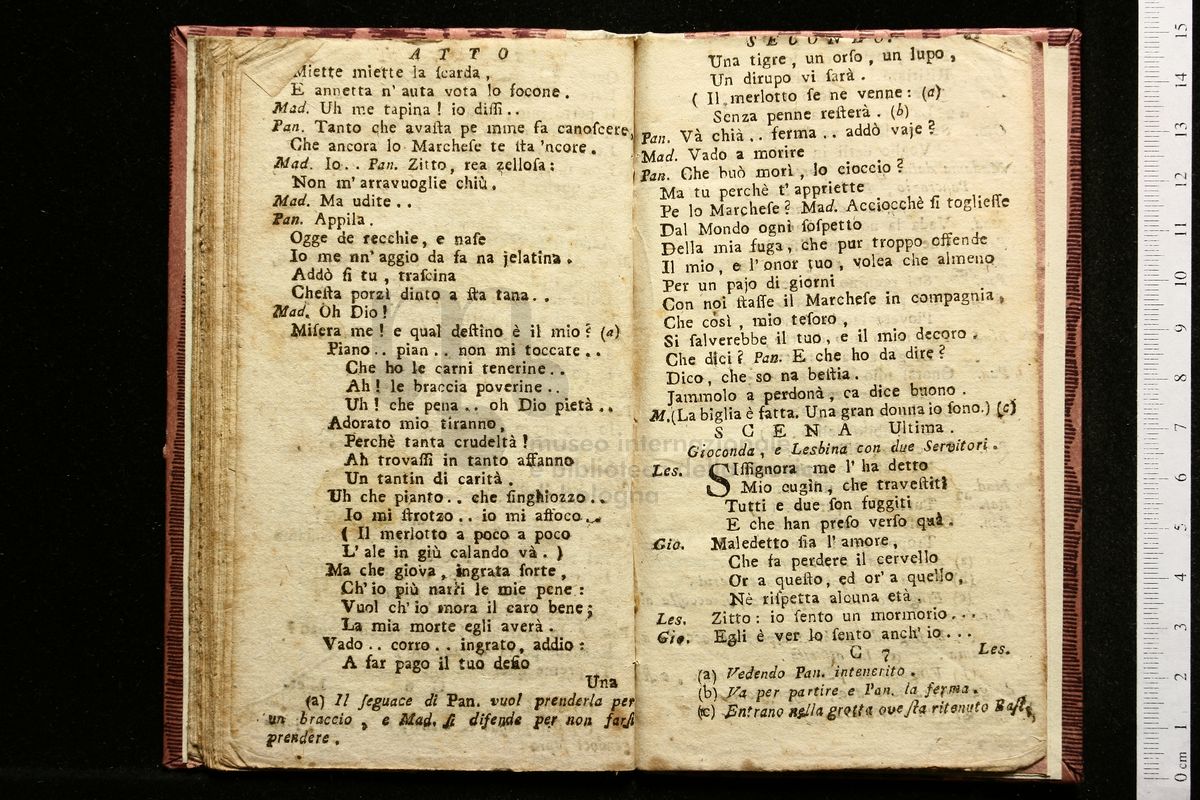 ATTO
Miette miette la ſcarda,
E annetta n'auta vota lo focone.
Mad. Uh me tapina! io diſſi..
Pan. Tanto che avaſta pe mme fa canoſcere,
Che ancora lo Marcheſe te ſta 'ncore.
Mad. Io.. Pan. Zitto, rea zelloſa:
Non m'arravuoglie chiù.
Mad. Ma udite..
Pan. Appila.
Ogge de recchie, e naſe
Io me nn'aggio da fa na jelatina.
Addò ſi tu, traſcina
Cheſta porzì dinto a ſta tana..
Mad. Oh Dio!
Miſera me! e qual deſtino è il mio? (a)
Piano.. pian.. non mi toccate..
Che ho le carni tenerine..
Ah! le braccia poverine..
Uh! che pena.. oh Dio pietà..
Adorato mio tiranno,
Perchè tanta crudeltà!
Ah trovaſſi in tanto affanno
Un tantin di carità.
Uh che pianto.. che ſinghiozzo..
Io mi ſtrotzo.. io mi affoco..
( Il merlotto a poco a poco
L'ale in giù calando và. )
Ma che giova, ingrata ſorte,
Ch'io più narri le mie pene:
Vuol ch'io mora il caro bene;
La mia morte egli averà.
Vado.. corro.. ingrato, addio:
A far pago il tuo deſio
Una
(a) Il ſeguace di Pan. vuol prenderla per
un braccio, e Mad. ſi difende per non farſi
prendere.
SECONDO.
Una tigre, un orſo, un lupo,
Un dirupo vi ſarà.
( Il merlotto ſe ne venne: (a)
Senza penne reſterà. (b)
Pan. Và chià.. ferma.. addò vaje?
Mad. Vado a morire
Pan. Che buò morì, lo cioccio?
Ma tu perchè t'appriette
Pe lo Marcheſe? Mad. Acciocchè ſi toglieſſe
Dal Mondo ogni ſoſpetto
Della mia fuga, che pur troppo offende
Il mio, e l'onor tuo, volea che almeno
Per un pajo di giorni
Con noi ſtaſſe il Marcheſe in compagnia,
Che così, mio teſoro,
Si ſalverebbe il tuo, e il mio decoro.
Che dici? Pan. E che ho da dire?
Dico, che so na beſtia.
Jammolo a perdonà, ca dice buono.
M. (La biglia è fatta. Una gran donna io ſono.) (c)
SCENA Ultima.
Gioconda, e Lesbina con due Servitori.
Les. SIſſignora me l'ha detto
Mio cugin, che traveſtiti
Tutti e due ſon fuggiti
E che han preſo verſo quà.
Gio. Maledetto ſia l'amore,
Che fa perdere il cervello
Or a queſto, ed or'a quello,
Nè riſpetta alcuna età.
Les. Zitto: io ſento un mormorio...
Gio. Egli è ver lo ſento anch'io...
C 7 Les.
(a) Vedendo Pan. intenerito.
(b) Va per partire e Pan. la ferma.
(c) Entrano nella grotta ove ſta ritenuto Baſt.
museo internazionale
e biblioteca della
di bologna
0 cm 1 2 3 4 5 6 7 8 9 10 11 12 13 14 15